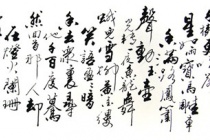 星如雨寶馬雕車
香滿路鳳簫
聲動玉壺
光轉一夜魚龍舞
蛾兒雪柳黃金縷
笑語盈盈暗
香去眾裏尋
他千百度驀
然回首那人卻
在燈火闌珊